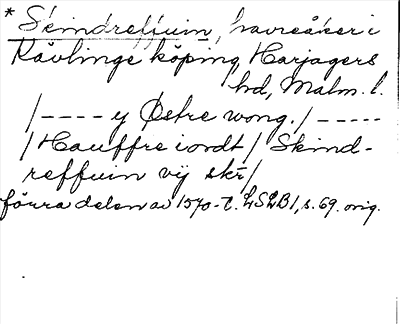 * Skindreffuin, havreåker i
Kävlinge köping, Harjagers
hd, Malm. l.
/---- y Østre wong./-----
/Hauffre iordt/ Skind-
reffuin vij skr/
förra delen av 1570-t. LSLB1, s. 69. orig.